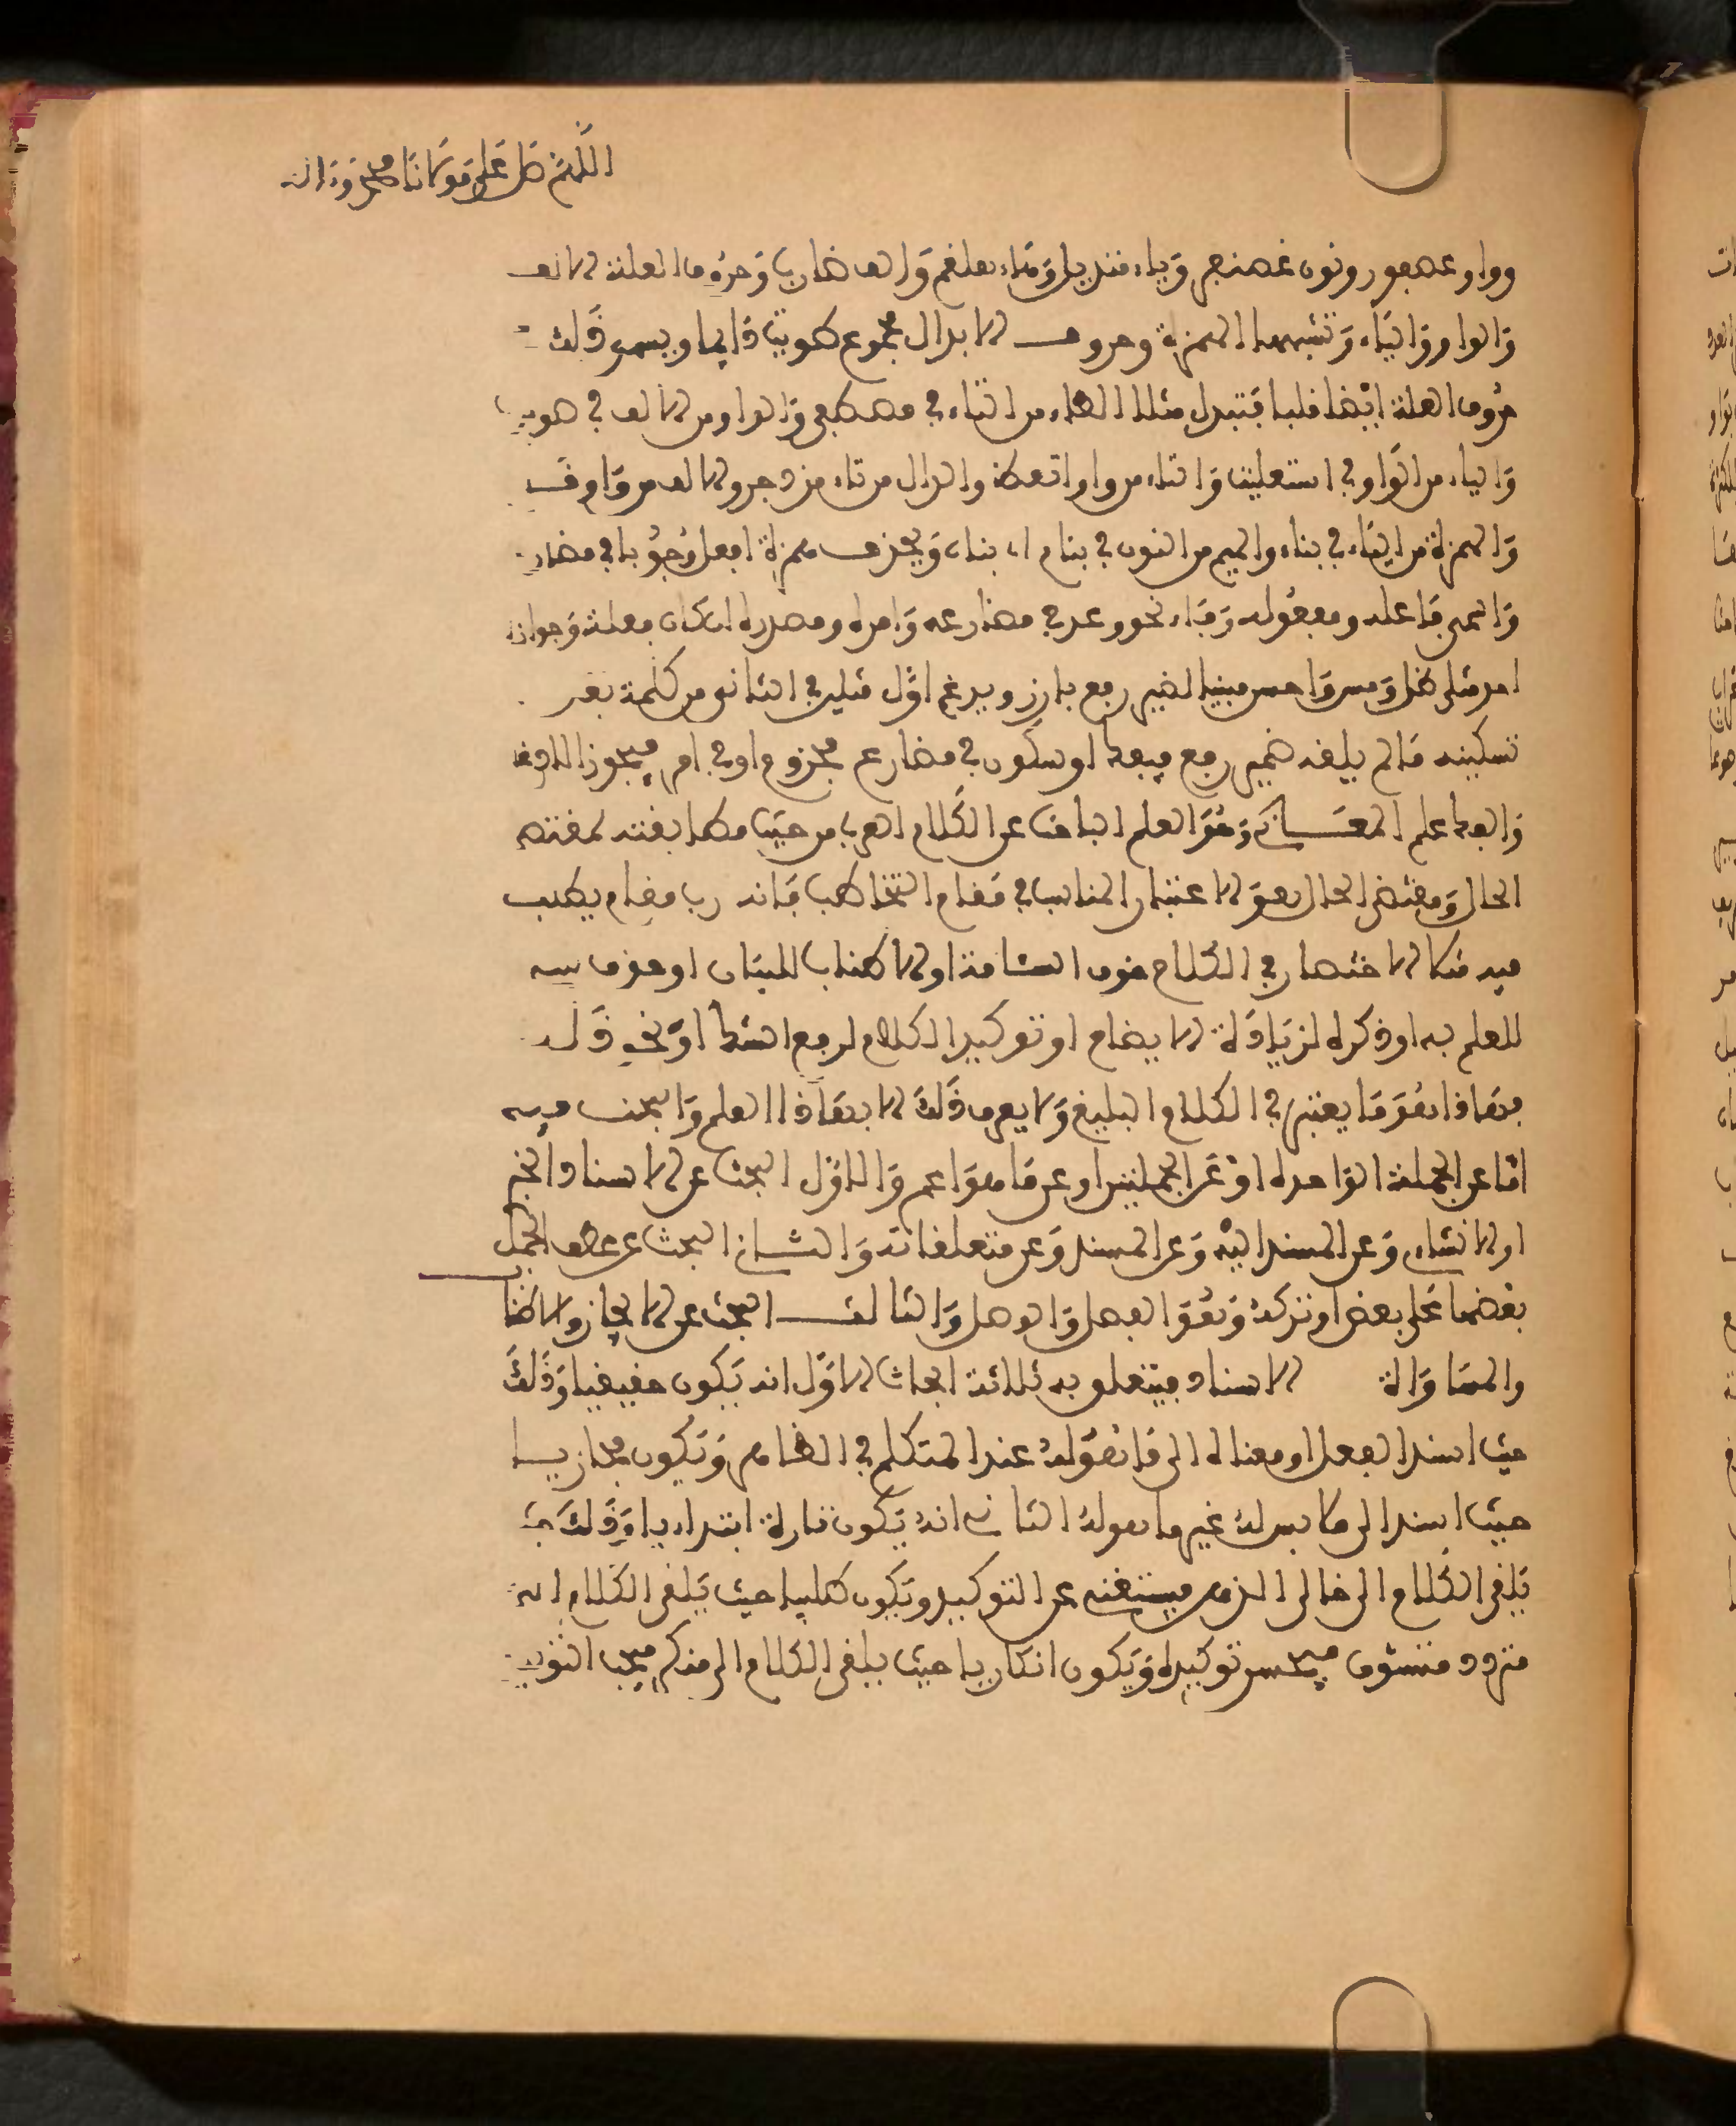 اللهم صل على مولانا محمد وءاله
وواو عصفور ونون غضنفر وياء قنديل وتاء وألف ضارب وحروف العلة الألف
والواو والياء وتشبهها الهمزة وحروف الإبدال مجموع طويت دايما ويسمى ذلك
حروف العلة أيضا قلبا فتبدل مثلا الطاء من التاء في مصطفى والواو من الألف في
والياء من الواو في استعليت والتاء من واو اتعظ والدال من تاء مزدجر والألف من واو
والهمزة من الياء في بناء والميم من النون في بنام أي بناء ويحذف همزة أفعل وجوبا في مضار
واسمي فاعله ومفعوله وفاء نحو وعد في مضارعه وأمره ومصدره إن كان فعلة وجوازا
أحد مثلي ظل ومس وأحس مبنيا لضمير رفع بارز ويدغم أول مثلين في الثاني من كلمة بعد
تسكينه ما لم يلقه ضمير رفع أو سكون في مضارع مجزوم أو في أمر فيجوز
علم المعاني وهو العلم الباحث عن الكلام العربي من حيث مطابقته لمقتضى
الحال ومقتضى الحال هو الاعتبار المناسب في مقام التخاطب فإنه رب مقام يطلب
فيه مثلا الاختصار في الكلام خوف السئامة أو الإطناب للبيان أو حذف شيء
للعلم به أو ذكره لزيادة الإيضاح أو توكيد الكلام لرفع الشك أو نحو ذلك
فهذا هو ما يعتبر في الكلام البليغ ولا يعرف ذلك إلا بهذا العلم والبحث فيه
إما عن الجملة الواحدة أو عن الجملتين أو عن ما هو أعم والأول البحث عن الإسناد الخبر
أو الإنشاء وعن المسند إليه وعن المسند وعن متعلقاته والثاني البحث عن عطف الجمل
بعضها على بعض أو تركه وهو الفصل والوصل والثالث البحث عن الإيجاز والإطنا
والمساواة الإسناد فيتعلق به ثلاثة أبحاث الأول أنه يكون حقيقيا وذلك
حيث أسند الفعل أو معناه إلى ما هو له عند المتكلم في الظاهر ويكون مجازيا
حيث أسند إلى ملابس له غير ما هو له الثاني أنه يكون تارة ابتداءيا وذلك
يلقى الكلام إلى خالي الذهن فيستغنى عن التوكيد ويكون طلبيا حيث يلقى الكلام إلى
متردد متشوف فيحسن توكيده ويكون إنكاريا حيث يلقى الكلام إلى منكر فيجب